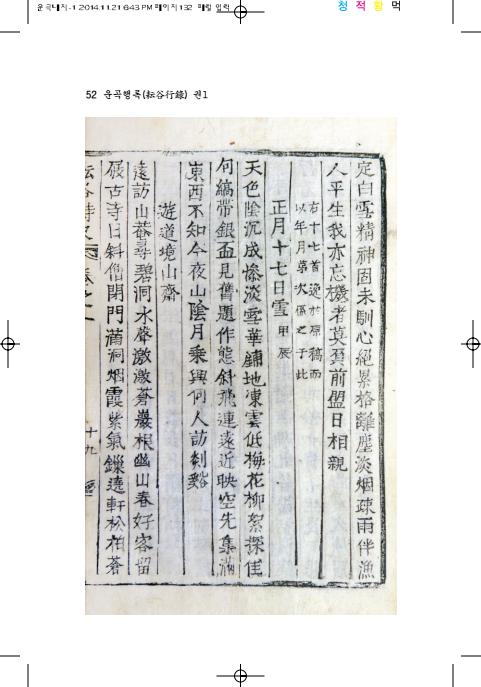 운곡내지-1 2014.11.21 6:43 PM 페이지132 매립 입력
청 적 황 먹
52 운곡행록(耘谷行錄) 권1
定白雪精神固未馴心絕累格離塵淡烟疎雨伴漁
人平生我亦忘機者莫負前盟日相親
右十七首逸於原稿而
以年月第次係之于此
正月十七日雪 甲辰
天色陰沉成慘淡雪華鋪地凍雲低梅花柳絮探佳
何縞帶銀盃見舊題作態斜飛連遠近映空先集滿
東西不知今夜山陰月乘興何人訪剡谿
遊道境山齋
遠訪山菴尋碧洞水聲激激蒼巖根幽山春好客留
屐古寺日斜僧閉門滿洞烟霞紫氣鏁遶軒松柏蒼
耘谷詩史 卷之一 十九